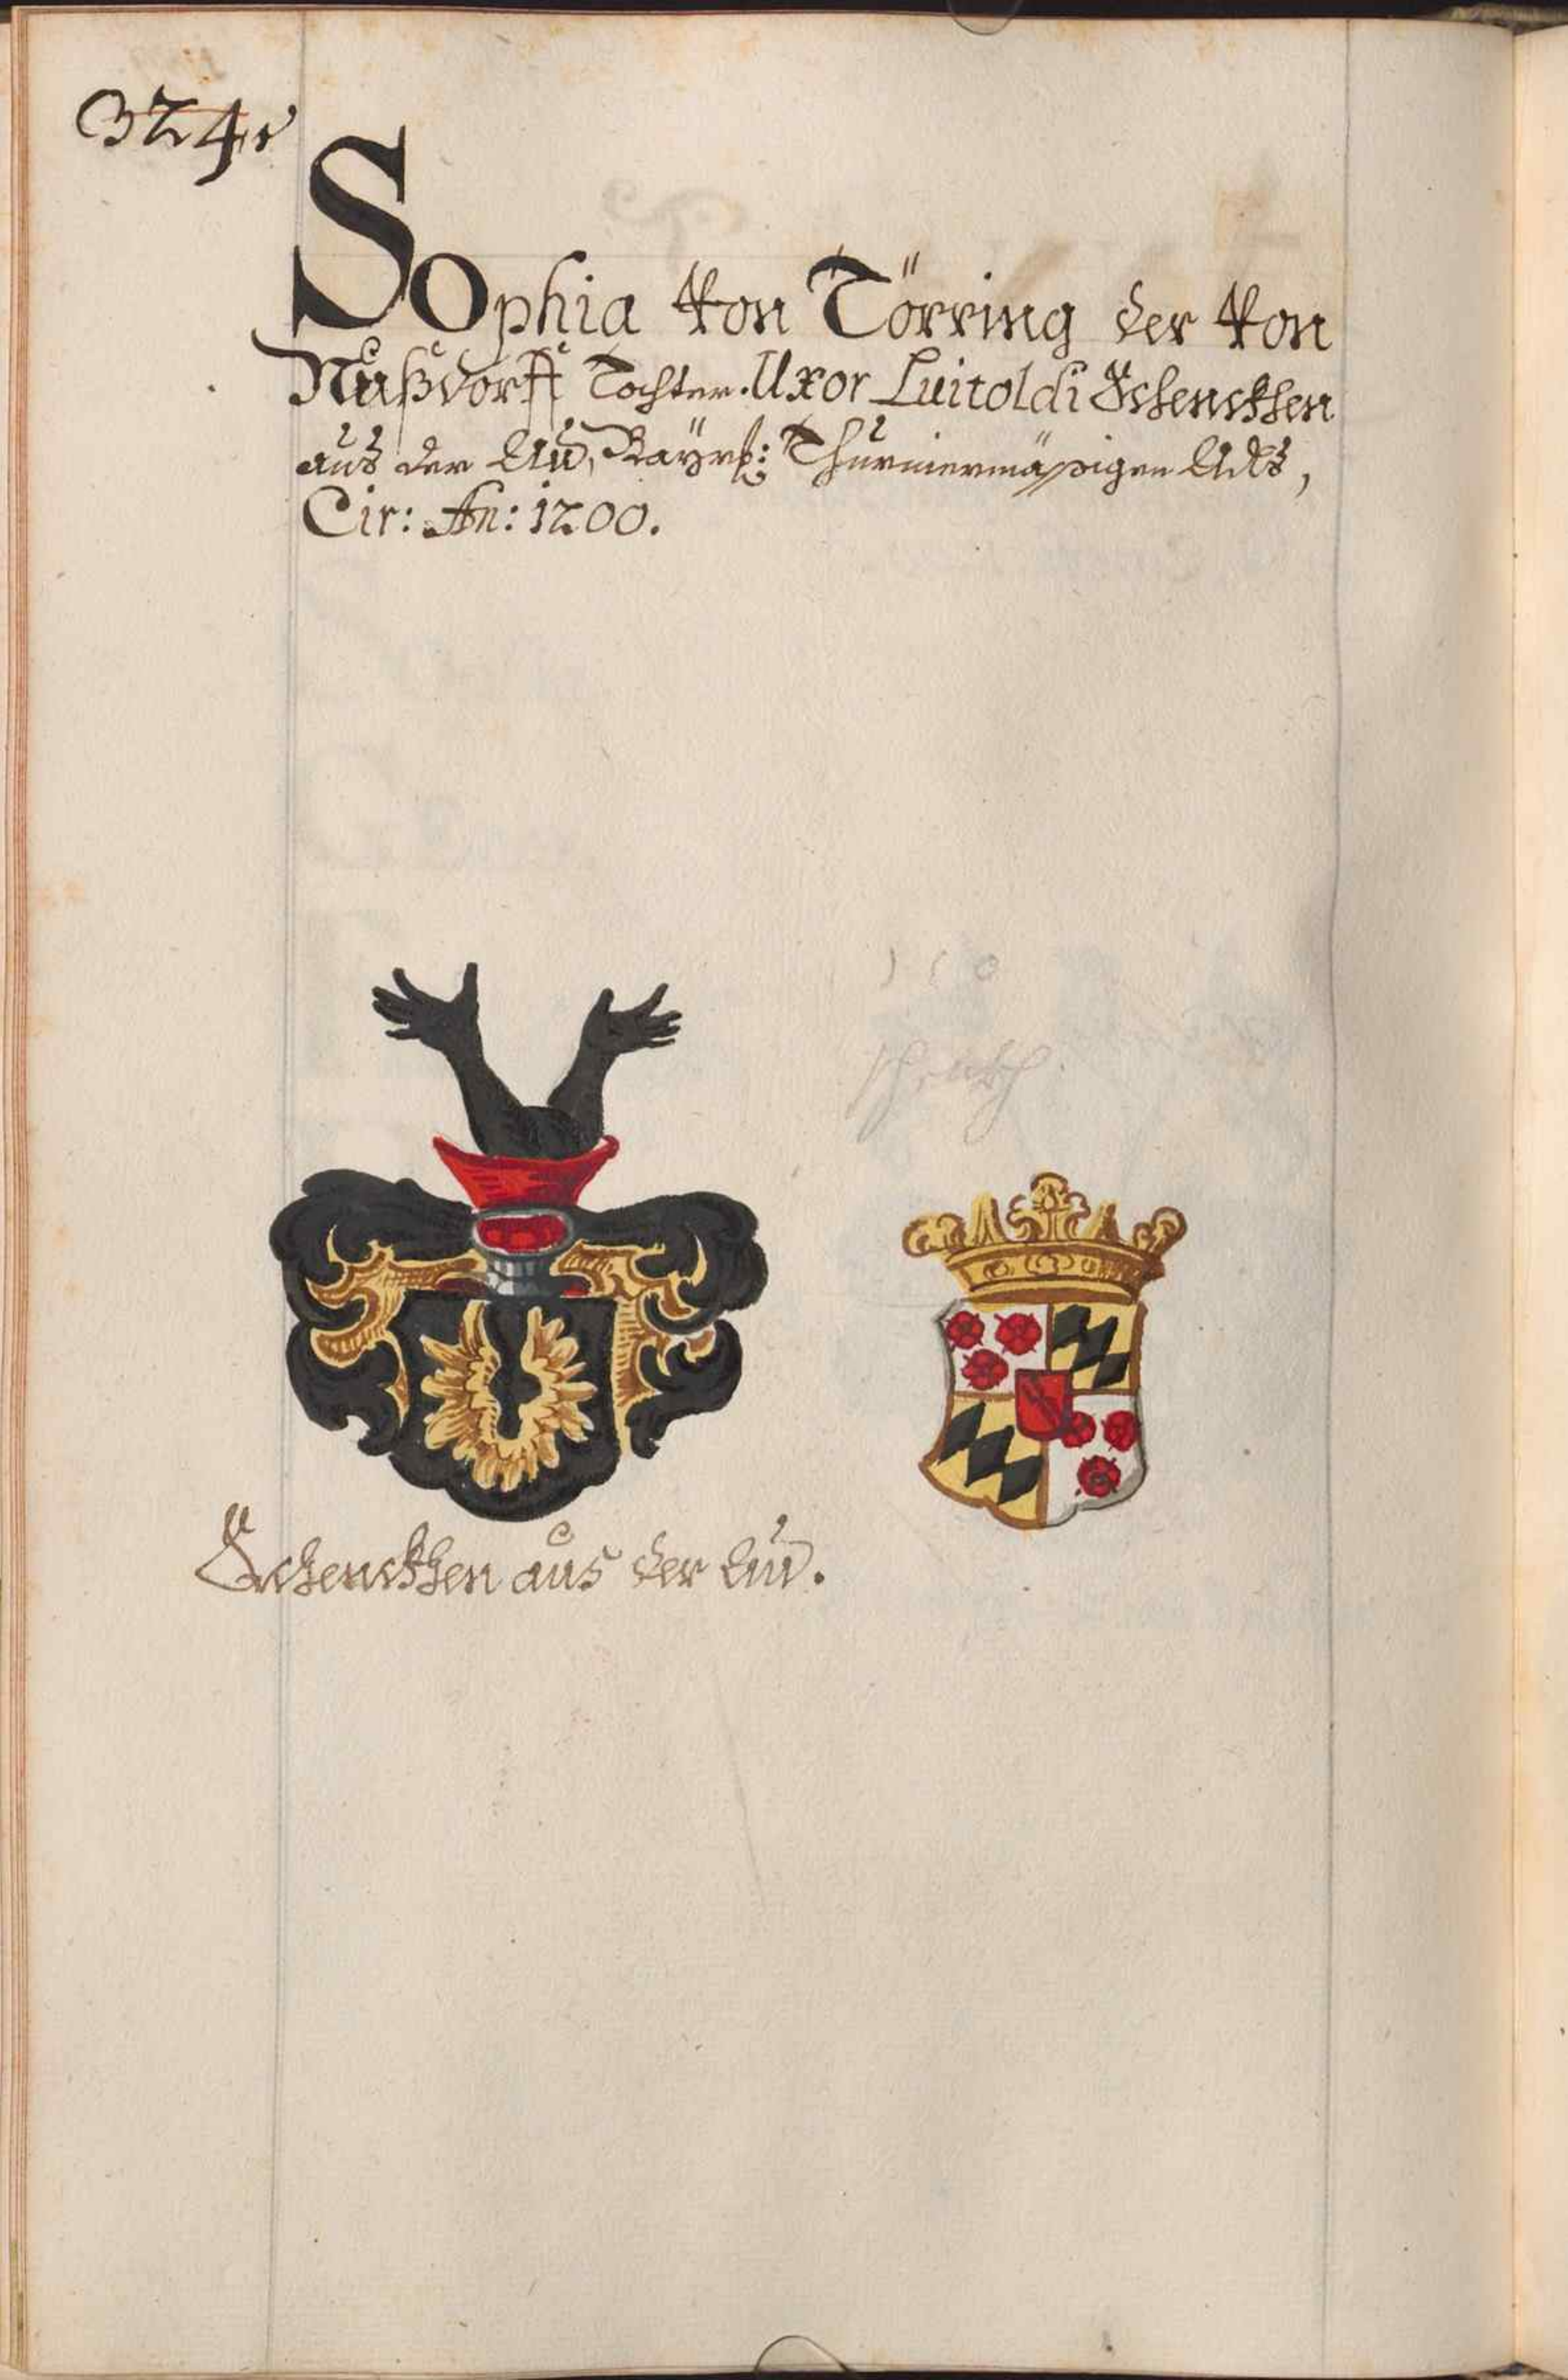 324.
Sophia Von Törring der Von
Nußdorff Tochter. Uxor Luitoldi Schenckhen
aus der Au, Bayrß: Thurniermäßigen Adls,
Cir: An: 1200.
Schenckhen aus der Au.